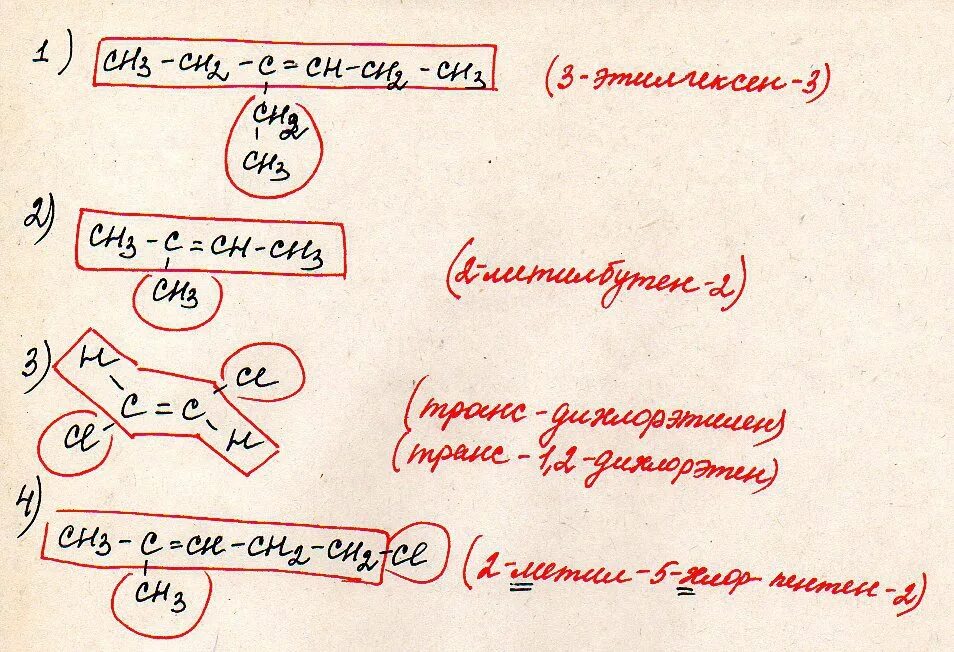 1) CH3-CH2-C=CH-CH2-CH3 (3-этилгексен-3)
CH2
CH3
2) CH3-C=CH-CH3 (2-метилбутен-2)
CH3
3) H Cl
C=C (транс-дихлорэтилен)
Cl H (транс-1,2-дихлорэтен)
4) CH3-C=CH-CH2-CH2-Cl (2-метил-5-хлор-пентен-2)
CH3